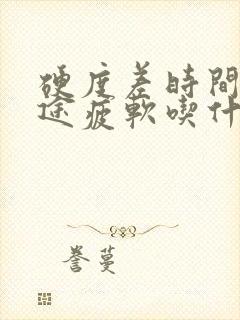 硬度差時間
途疲軟喫什
誉蔓